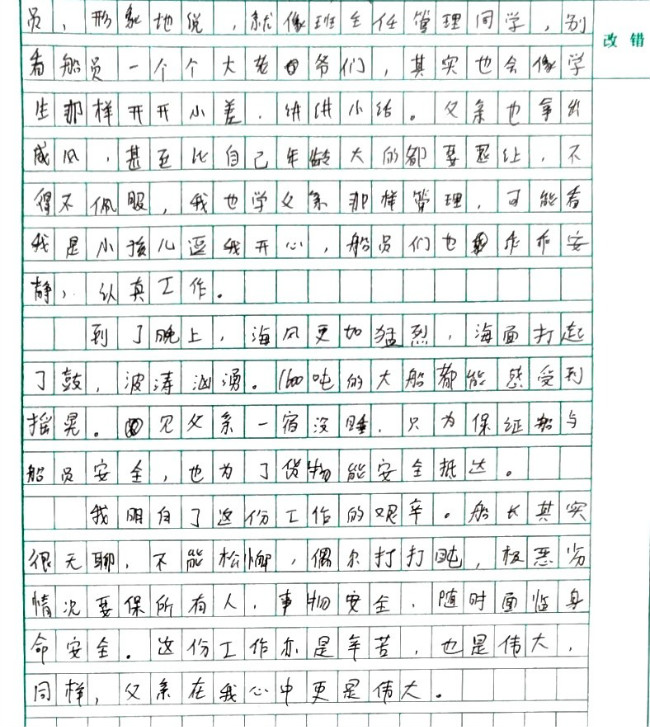 员，形象地说，就像班主任管理同学，别
改错
看船员一个个大老爷们，其实也会像学
生那样开开小差，讲讲小话。父亲也拿出
威风，甚至比自己年龄大的都要惹上，不
得不佩服，我也学父亲那样管理，可能看
我是小孩儿逗我开心，船员们也乖乖安
静，认真工作。
到了晚上，海风更加猛烈，海面打起
了鼓，波涛汹涌。1600吨的大船都能感受到
摇晃。见父亲一宿没睡，只为保证船与
船员安全，也为了货物能安全抵达。
我明白了这份工作的艰辛。船长其实
很无聊，不能松懈，偶尔打打盹，极恶劣
情况要保所有人，事物安全，随时面临身
命安全。这份工作亦是辛苦，也是伟大，
同样，父亲在我心中更是伟大。